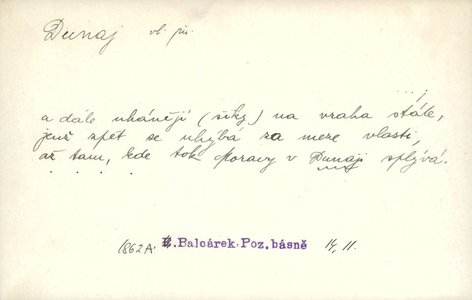 Dunaj vl. jm.
. . . ;
a dále uhánějí (šiky) na vraha stále,
jenž zpět se uhýbá za meze vlasti,
až tam, kde tok Moravy v Dunaji splývá.
. . . . .
1862 A. Balcárek, Poz. básně 14, 11.